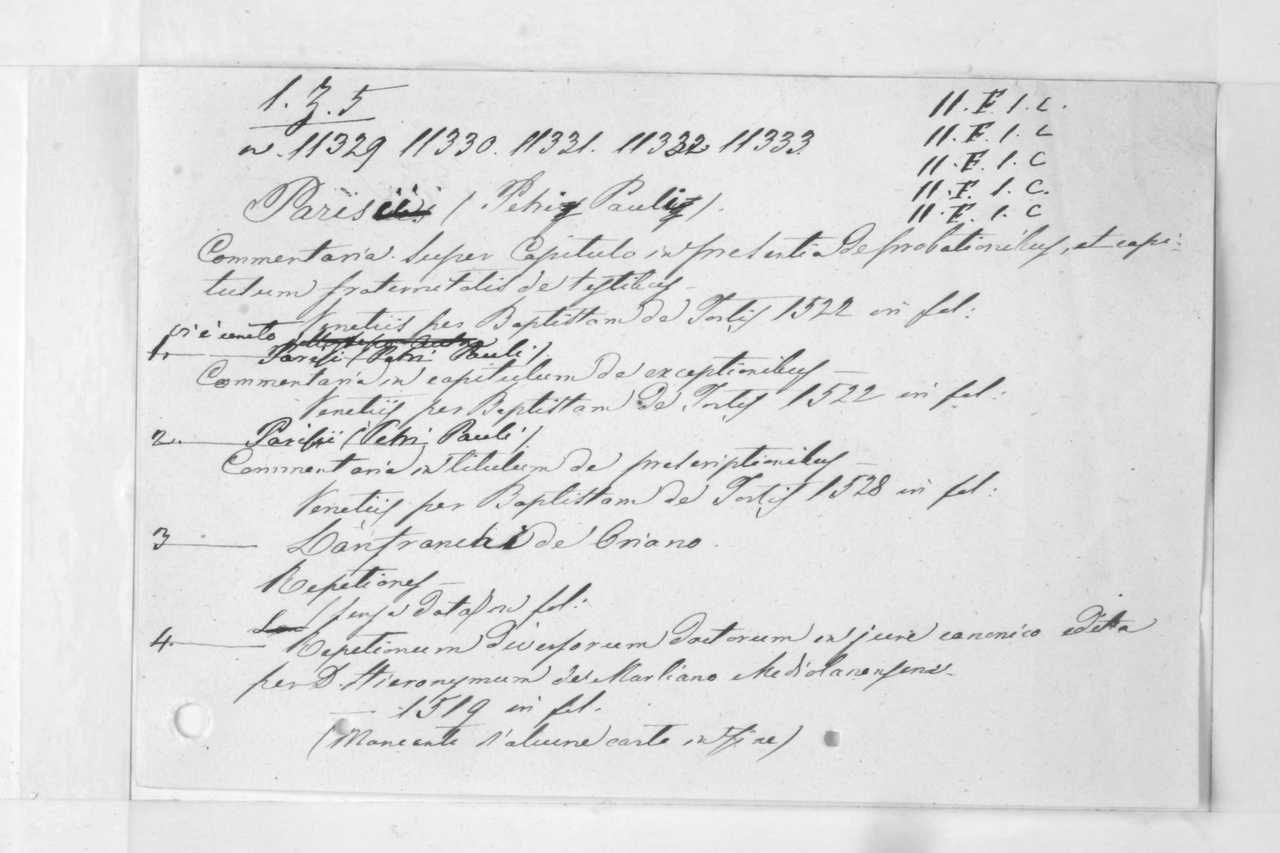 1. Z. 5
II. F. 1. C.
n. 11329 11330. 11331. 11332 11333
II. F. 1. C
II. F. 1. C
II. F. 1. C.
II. F. 1. C
Parisii (Petri Pauli).
Commentaria super Capitulo in presentia de probationibus, et capi-
tulum fraternitatis de testibus —
Venetiis per Baptistam de Tortis 1522 in fol:
vi è unito
1. — Parisii (Petri Pauli)
Commentaria in capitulum de exceptionibus —
Venetiis per Baptistam de Tortis 1522 in fol:
2. — Parisii (Petri Pauli)
Commentaria in titulum de prescriptionibus —
Venetiis per Baptistam de Tortis 1528 in fol:
3 — Lanfranchi de Oriano.
Repetiones —
senza data in fol:
4. — Repetionum diversorum doctorum in jure canonico editta
per D. Hieronymum de Marliano Mediolanensem —
— 1519 in fol.
(Mancante d'alcune carte in fine)